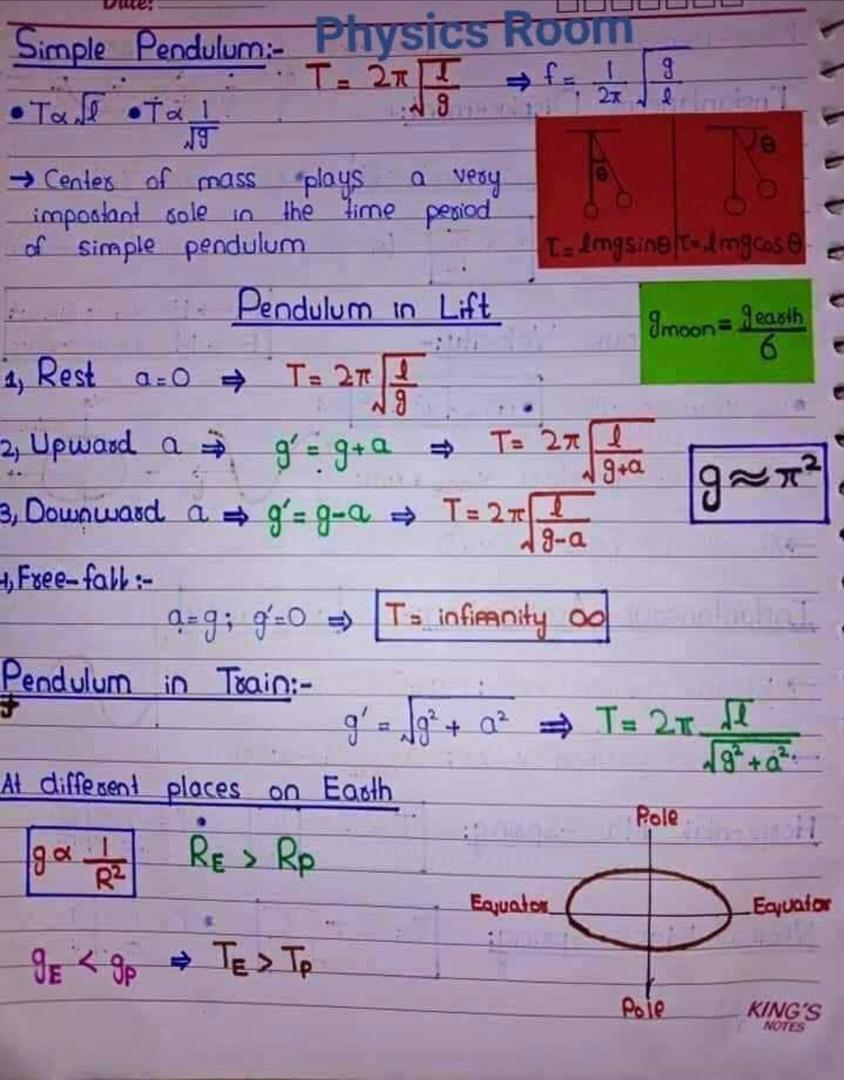 Date:
Physics Room
Simple Pendulum:-
T = 2π√(l/g) ⇒ f = 1/2π √(g/l)
• T∝√l • T∝ 1/√g
→ Center of mass plays a very
impoatant role in the time period
of simple pendulum
θ θ
τ = lmgsinθ τ = lmgcosθ
Pendulum in Lift
g moon = g earth / 6
1, Rest a=0 ⇒ T= 2π√(l/g)
2, Upward a ⇒ g' = g+a ⇒ T= 2π√(l/(g+a))
g ≈ π²
3, Downward a ⇒ g' = g-a ⇒ T = 2π√(l/(g-a))
4, Free-fall:-
a=g; g'=0 ⇒ T= infiranity ∞
Pendulum in Train:-
g' = √(g² + a²) ⇒ T= 2π √l/√(g²+a²)
At different places on Earth
g ∝ 1/R² R_E > R_P
Pole
Equator Equator
g_E < g_P ⇒ T_E > T_P
Pole
KING'S
NOTES